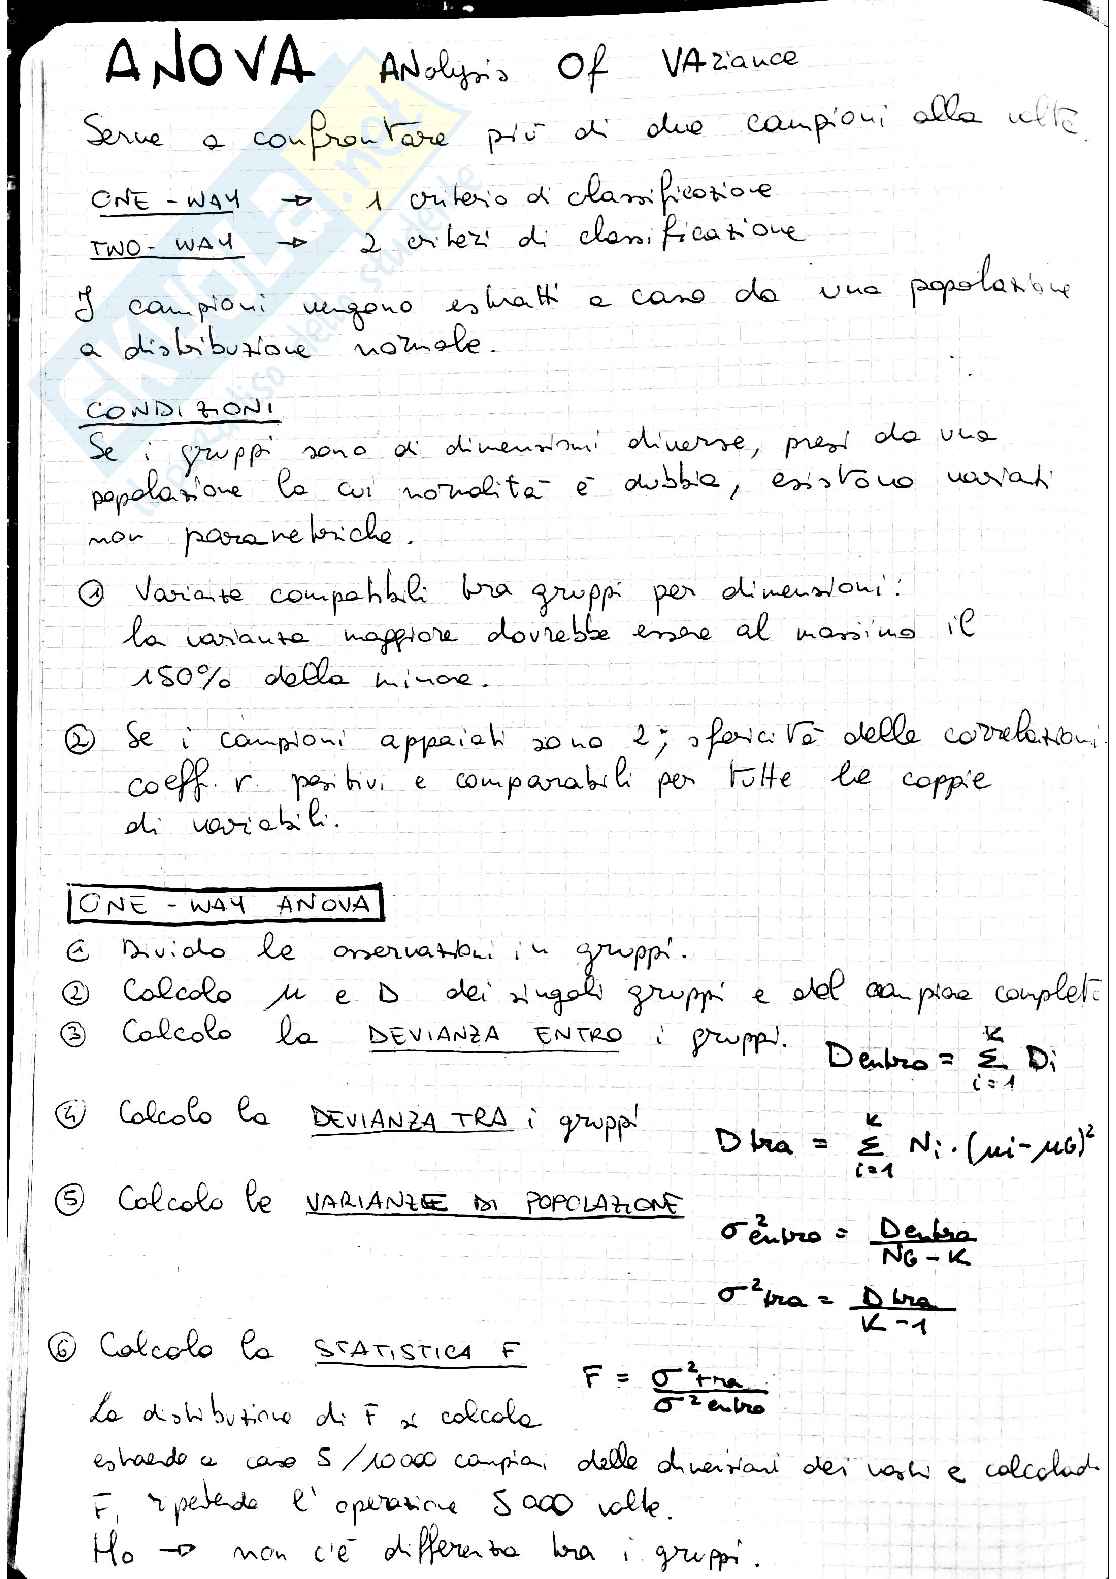 ANOVA ANalysis Of VAriance
Serve a confrontare più di due campioni alla volta
ONE-WAY → 1 criterio di classificazione
TWO-WAY → 2 criteri di classificazione
I campioni vengono estratti a caso da una popolazione
a distribuzione normale.
CONDIZIONI
Se i gruppi sono di dimensioni diverse, presi da una
popolazione la cui normalità è dubbia, esistono variati
non parametriche.
① Varianze compatibili tra gruppi per dimensioni:
la varianza maggiore dovrebbe essere al massimo il
150% della minore.
② Se i campioni appaiati sono 2; sfericità delle correlazioni.
coeff. r. positivi e comparabili per tutte le coppie
di variabili.
ONE-WAY ANOVA
① Divido le osservazioni in gruppi.
② Calcolo μ e D dei singoli gruppi e del campione complet.
③ Calcolo la DEVIANZA ENTRO i gruppi. Dentro = Σ_{i=1}^{K} Di
④ Calcolo la DEVIANZA TRA i gruppi Dtra = Σ_{i=1}^{K} Ni·(μi-μG)²
⑤ Calcolo le VARIANZE DI POPOLAZIONE σ²entro = Dentro / NG-K
σ²tra = Dtra / K-1
⑥ Calcolo la STATISTICA F F = σ²tra / σ²entro
La distribuzione di F si calcola
estraendo a caso 5/10000 campioni delle dimensioni dei nostri e calcolando
F, ripetendo l'operazione 5000 volte.
H₀ → non c'è differenza tra i gruppi.
SKUOLA.net